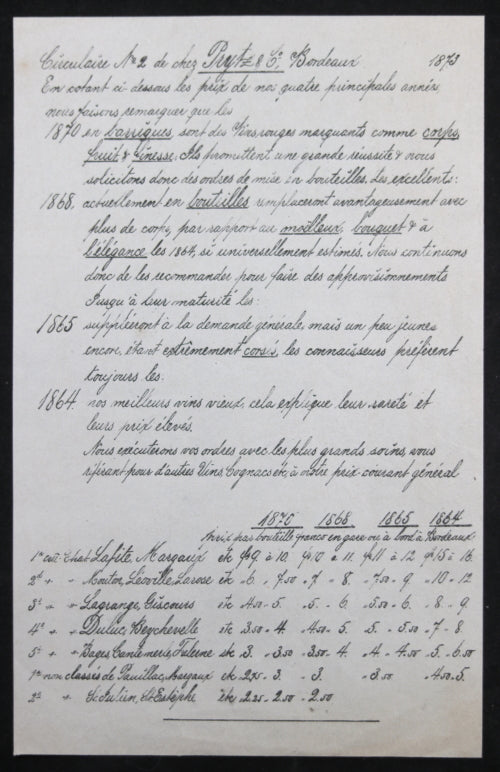 Circulaire No 2 de chez Prytz & Co, Bordeaux 1873
En cotant ci dessous les prix de nos quatre principales années,
nous faisons remarquer que les
1870 en barriques, sont des Vins rouges marquants comme corps,
fruit & finesse; Ils promettent une grande réussite & nous
solicitons donc des ordres de mise en bouteilles. Les excellents:
1868, actuellement en bouteilles remplaceront avantageusement avec
plus de corps, par rapport au moëlleux, bouquet & à
l'élégance les 1864, si universellement estimés. Nous continuons
donc de les recommander pour faire des approvisionnements
Jusqu'à leur maturité les:
1865 suppléeront à la demande générale, mais un peu jeunes
encore, étant extrêmement corsés, les connaisseurs préfèrent
toujours les:
1864 nos meilleurs vins vieux, cela explique leur rareté et
leurs prix élevés.
Nous exécuterons vos ordres avec les plus grands soins, vous
référant pour d'autres Vins, Cognacs etc, à notre prix courant général
1870 1868 1865 1864
Prix par bouteille franco en gare ou à bord à Bordeaux
1er crû: Chat Lafite, Margaux etc f 9. à 10. f 10 à 11. f 11 à 12 f 15 à 16.
2d " " Mouton, Léoville, Larose etc " 6. " 7.50 " 7 " 8. " 7.50 " 9. " 10 " 12
3e " " Lagrange, Giscours etc " 4.50 " 5. " 5. " 6. " 5.50 " 6. " 8 " 9.
4e " " Duluc, Beychevelle etc " 3.50 " 4. " 4.50 " 5. " 5. " 5.50 " 7 " 8.
5e " " Bages, Cantemerle, Tulerne etc " 3. " 3.50 " 3.50 " 4. " 4. " 4.50 " 5. " 6.50
1er non classés de Pauillac, Margaux etc " 2.75 " 3. " 3. " 3.50 " 4.50 " 5.
2d " " St Julien, St Estèphe etc " 2.25 " 2.50 " 2.50